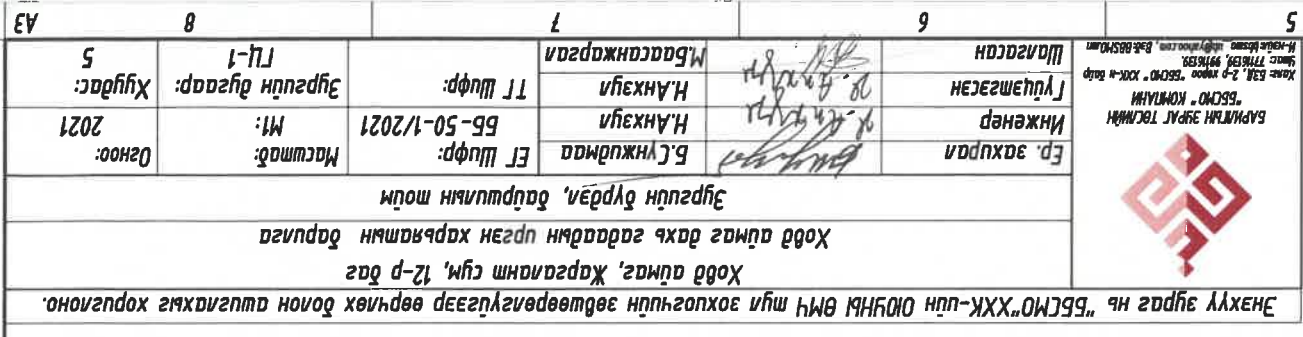 Энэхүү зураг нь "ББСМО"ХХК-ийн ОЮУНЫ ӨМЧ тул зохиогчийн зөвшөөрөлгүйгээр өөрчлөх болон ашиглахыг хориглоно.
Ховд аймаг, Жаргалант сум, 12-р баг
Ховд аймаг дахь гадаадын иргэн харьяатын барилга
Зургийн бүрдэл, байршлын тойм
БАРИЛГЫН ЗУРАГ ТӨСЛИЙН
"ББСМО" КОМПАНИ
Хаяг: БЗД, 2-р хороо "ББСМО" ХХК-н байр
Утас: 77116139, 99116139
Ер. захирал Б.Сүнжидмаа ЕГ Шифр: Масштаб: Огноо:
Инженер Н.Анхзул ББ-50-1/2021 М1: 2021
Гүйцэтгэсэн Н.Анхзул ТГ Шифр: Зургийн дугаар: Хуудас:
Шалгасан М.Баасанжаргал ГЦ-1 5
5 6 7 8 А3